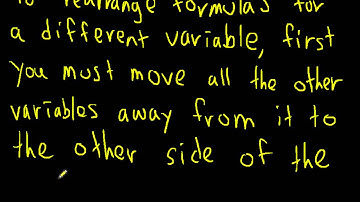 to rearrange formulas for
a different variable, first
you must move all the other
variables away from it to
the other side of the